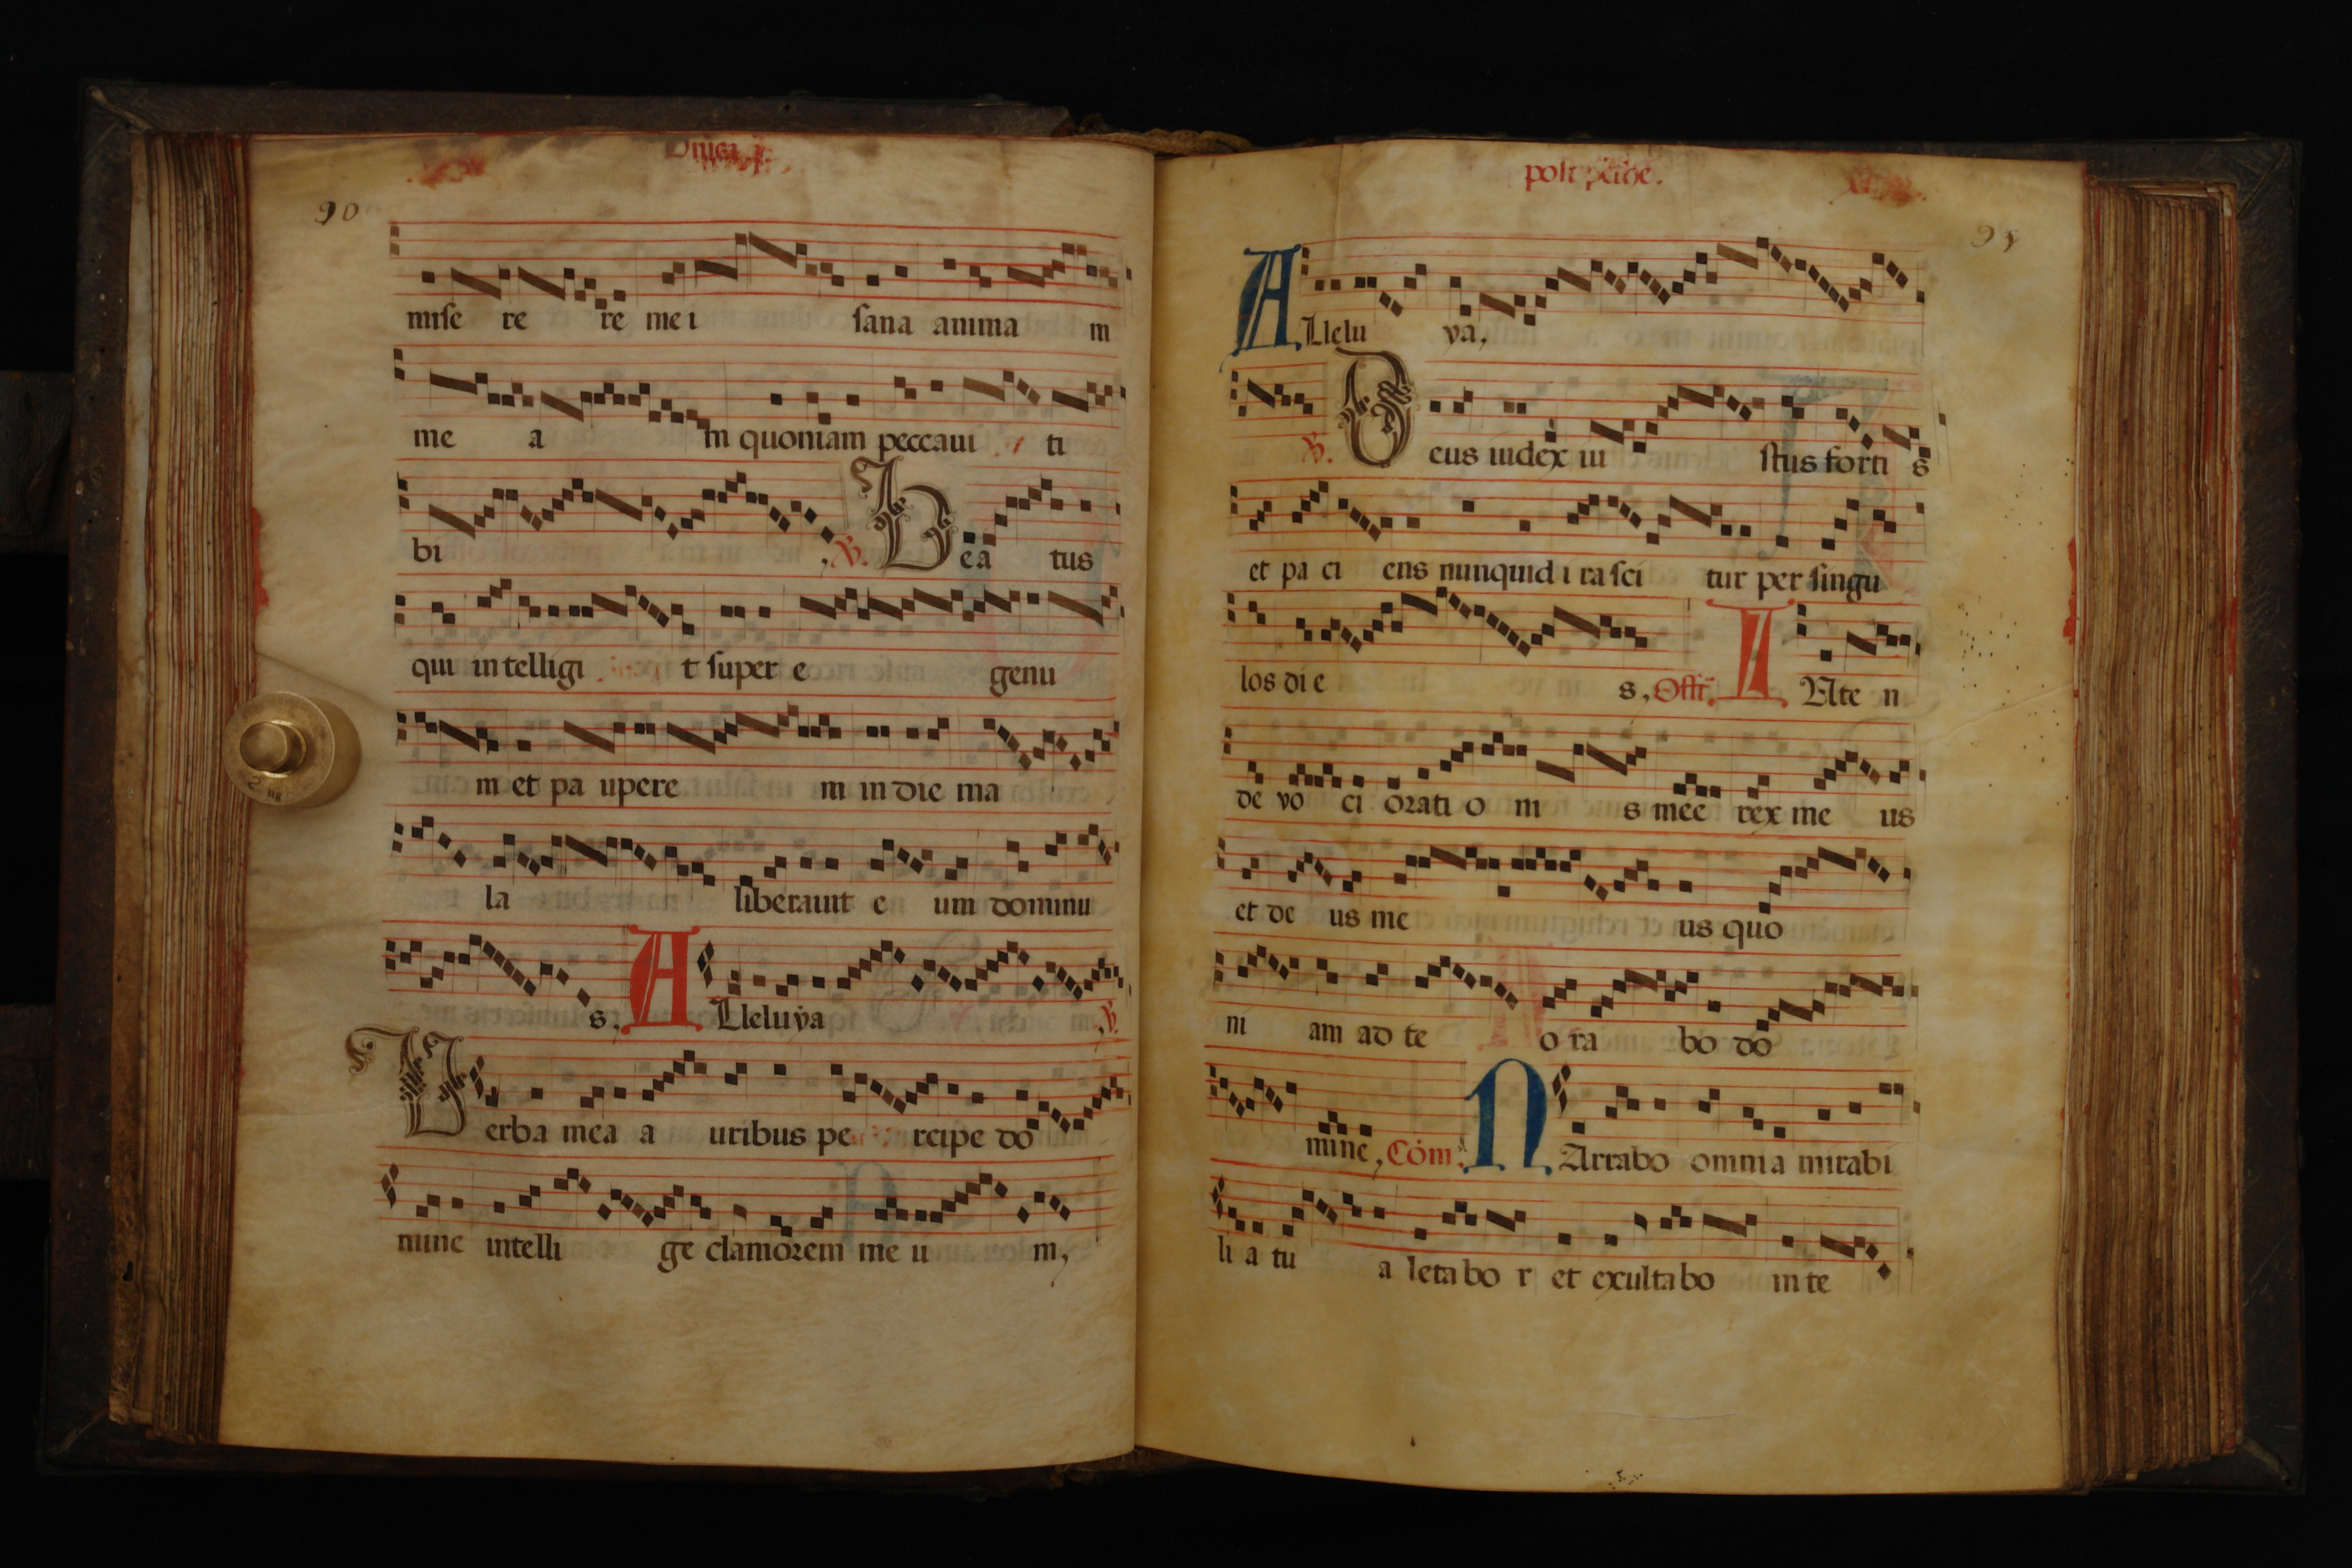 Dnica
90
mise re re me i sana anima m
me a m quoniam peccaui ti
bi , ℣. Bea tus
qui intelligi t super e genu
m et pa upere m in die ma
la liberauit e um dominu
s. Alleluya , ℣.
Verba mea a uribus pe rcipe do
nunc intelli ge clamorem me u m,
post
Allelu ya,
℣. Deus iudex iu stus forti s
et pa ci ens nunquid i ra sci tur per singu
los di e s, Offr. INte n
de vo ci orati o ni s mee rex me us
et de us me us quo
ni am ad te o ra bo do
mine, Com. NArrabo omnia mirabi
li a tu a letabo r et exultabo in te